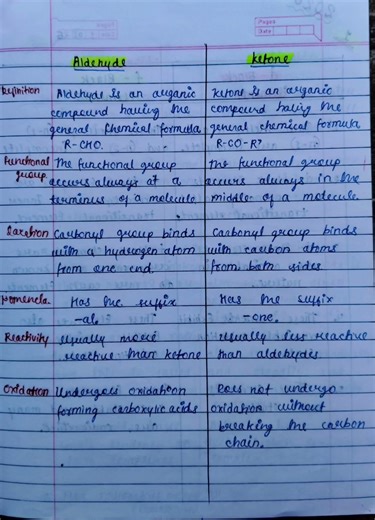 Pages
Date
Aldehyde ketone
Definition Aldehyde is an organic ketone is an organic
compound having the compound having the
general chemical formula general chemical formula
R-CHO. R-CO-R'
Functional The functional group The functional group
group occurs always at a occurs always in the
terminus of a molecule middle of a molecule.
Location Carbonyl group binds Carbonyl group binds
with a hydrogen atom with carbon atoms
from one end. from both sides
Nomencla. Has the suffix Has the suffix
-al. -one.
Reactivity Usually more Usually less reactive
reactive than ketone than aldehydes
Oxidation Undergoes oxidation Does not undergo
forming carboxylic acids oxidation without
breaking the carbon
chain.